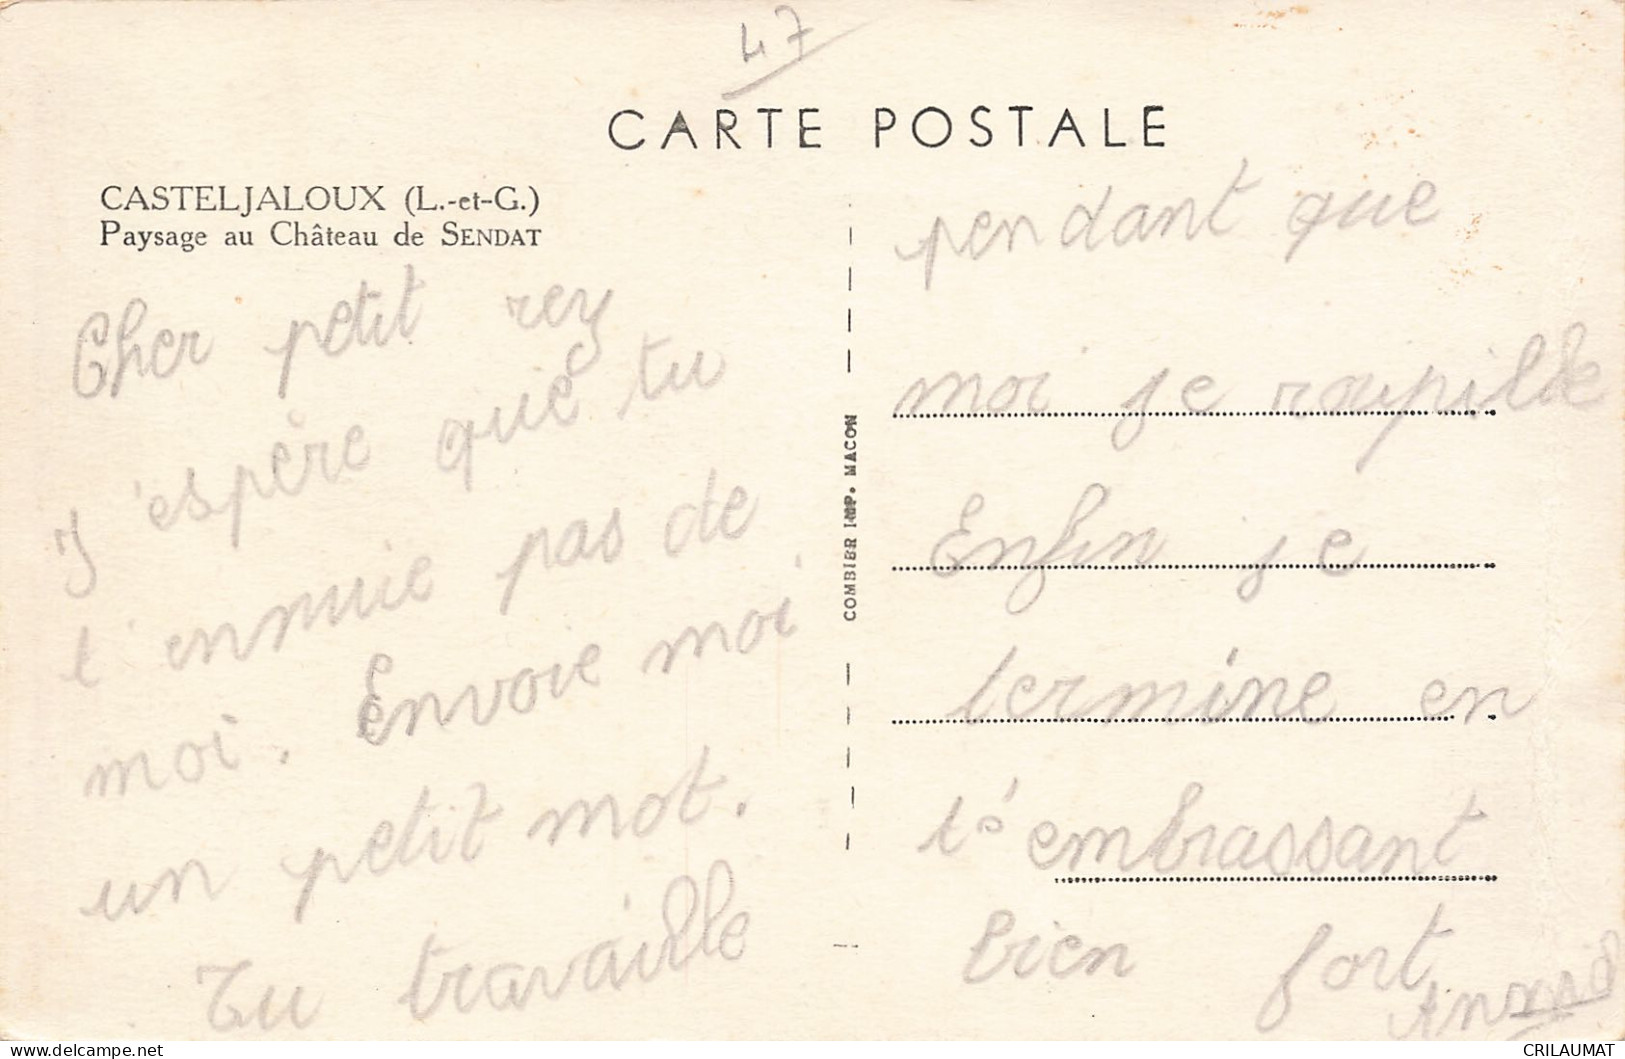 47
CARTE POSTALE
CASTELJALOUX (L.-et-G.)
Paysage au Château de SENDAT
Cher petit rey
J'espère que tu
t'ennuie pas de
moi. Envoie moi
un petit mot.
Tu travaille
COMBIER IMP. MACON
pendant que
moi je roupille
Enfin je
termine en
t'embrassant
bien fort
delcampe.net
CRILAUMAT